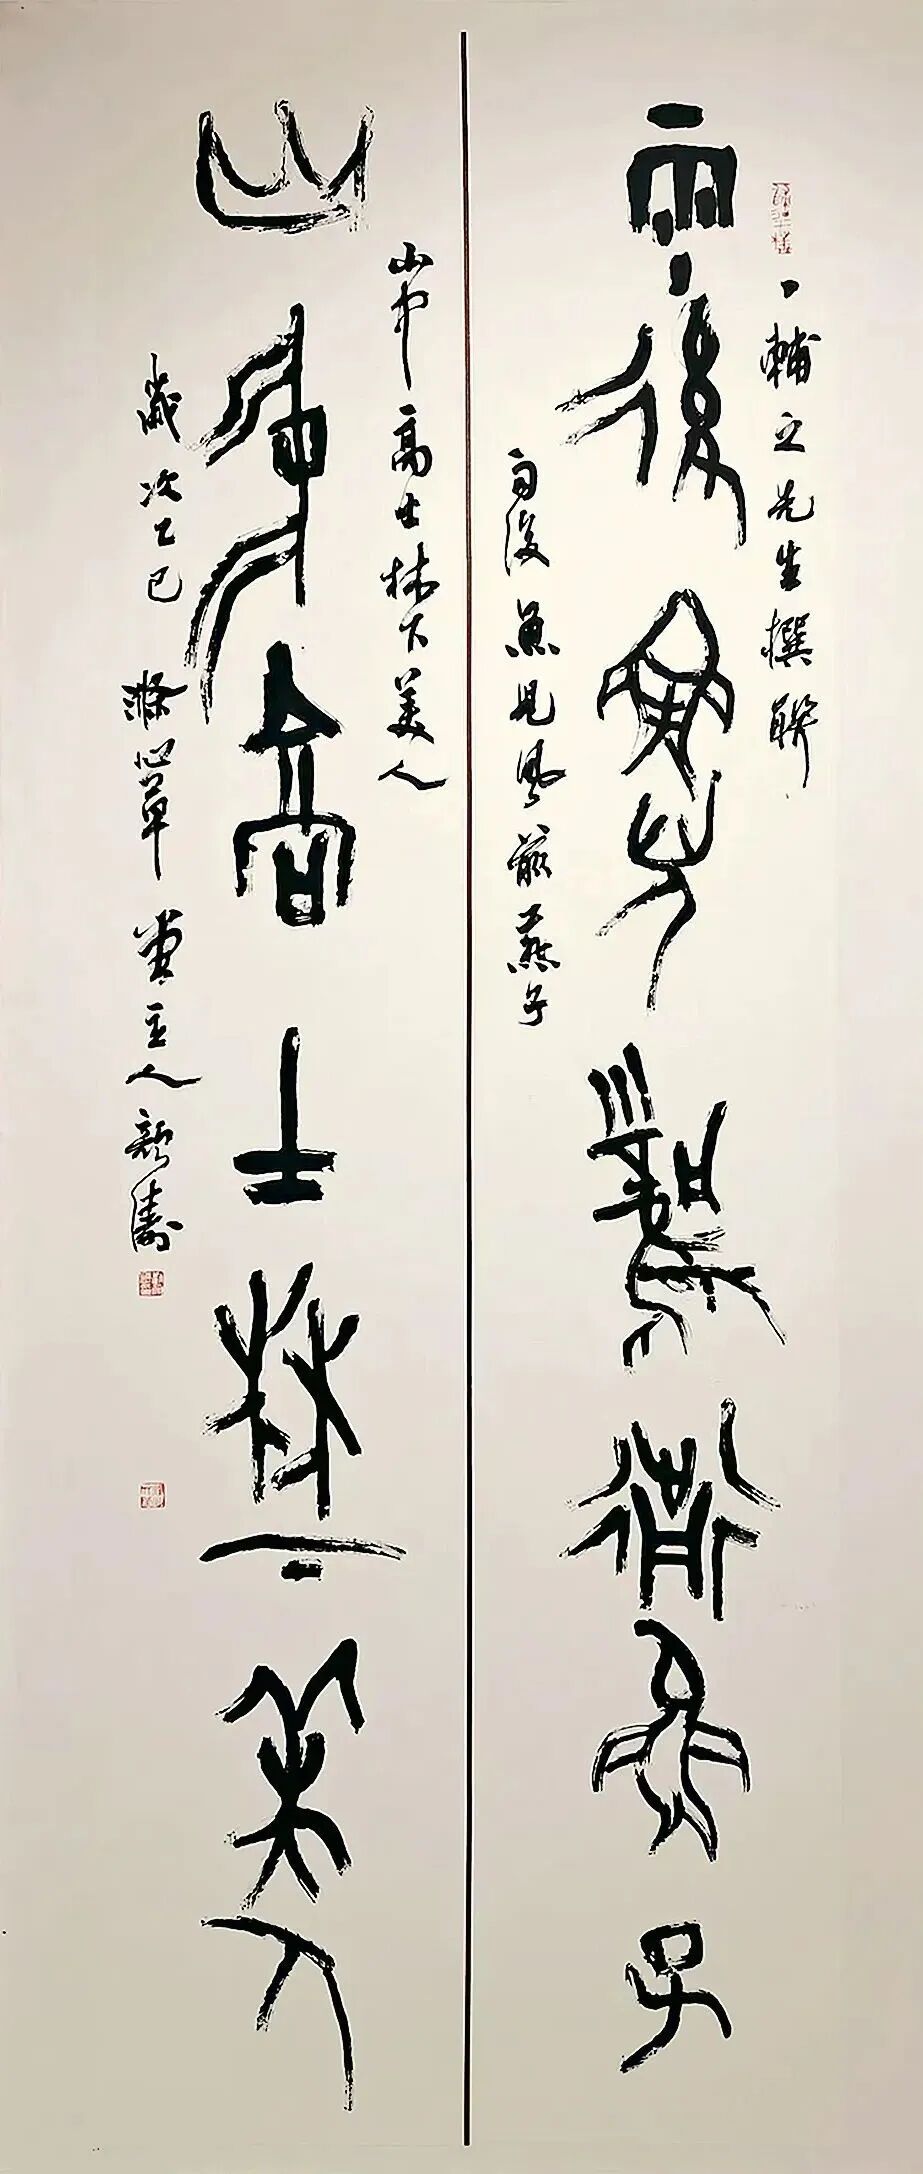 丁輔之先生撰聯
雨後魚兒風前燕子
雨後魚兒風前燕子
山中高士林下美人
山中高士林下美人
歲次乙巳滌心草堂主人顏濤